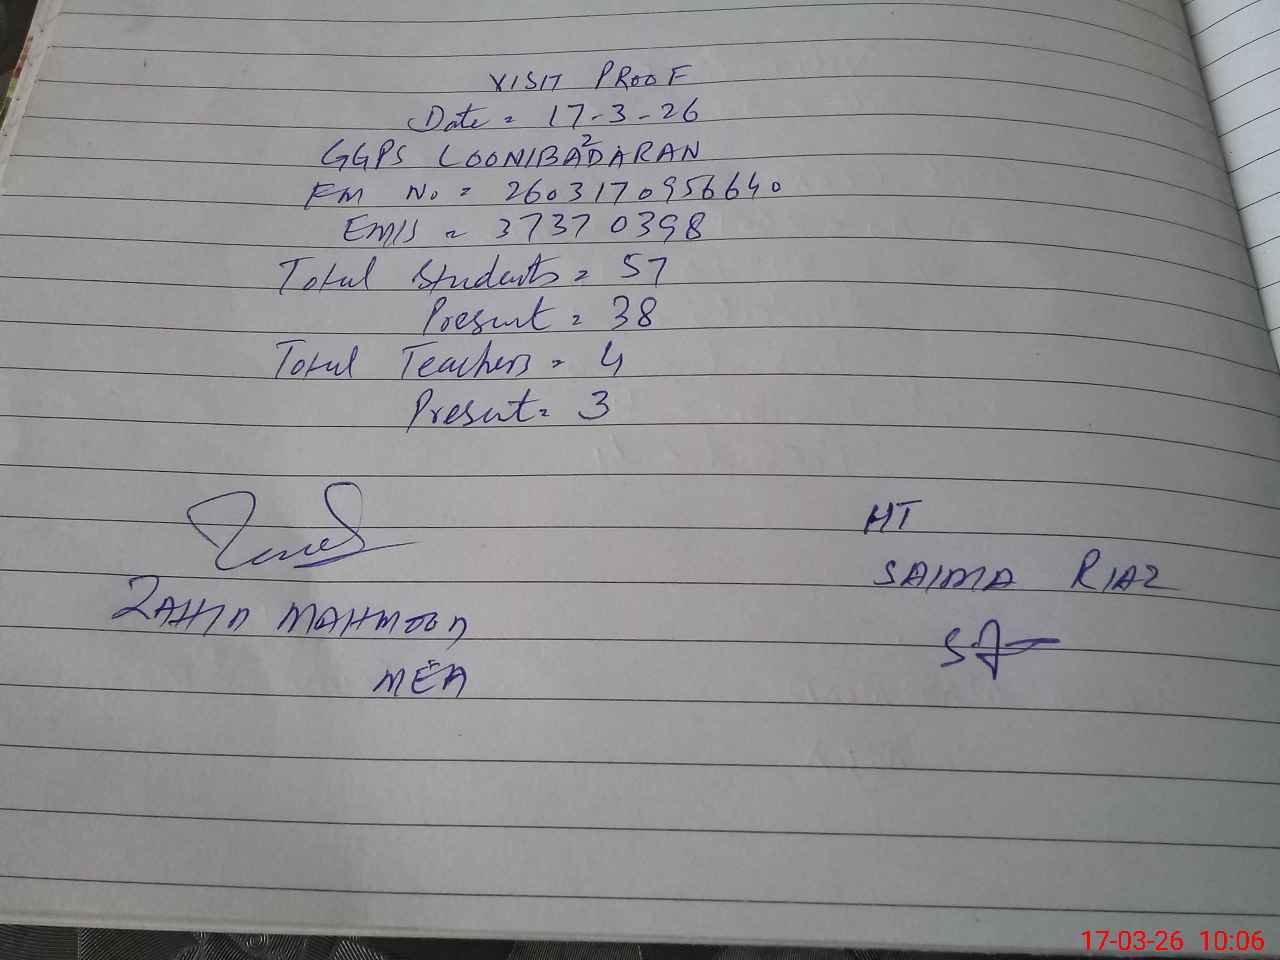 VISIT PROOF
Date = 17-3-26
GGPS LOONIBADARAN
FM No = 2603170956640
EMIS = 37370398
Total Students = 57
Present = 38
Total Teachers = 4
Present = 3
HT
SAIMA RIAZ
ZAHID MAHMOOD
MEA
17-03-26 10:06